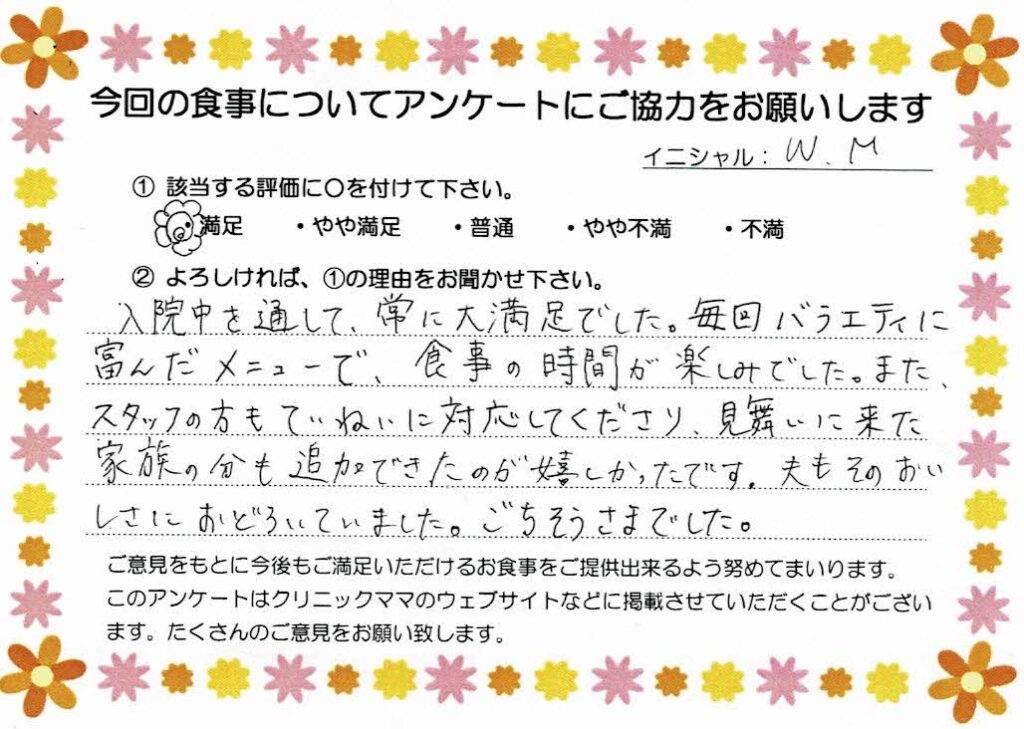 今回の食事についてアンケートにご協力をお願いします
イニシャル： W. M
① 該当する評価に〇を付けて下さい。
満足 ・やや満足 ・普通 ・やや不満 ・不満
② よろしければ、①の理由をお聞かせ下さい。
入院中を通して、常に大満足でした。毎回バラエティに
富んだメニューで、食事の時間が楽しみでした。また、
スタッフの方もていねいに対応してくださり、見舞いに来た
家族の分も追加できたのが嬉しかったです。夫もそのおい
しさにおどろいていました。ごちそうさまでした。
ご意見をもとに今後もご満足いただけるお食事をご提供出来るよう努めてまいります。
このアンケートはクリニックママのウェブサイトなどに掲載させていただくことがござい
ます。たくさんのご意見をお願い致します。